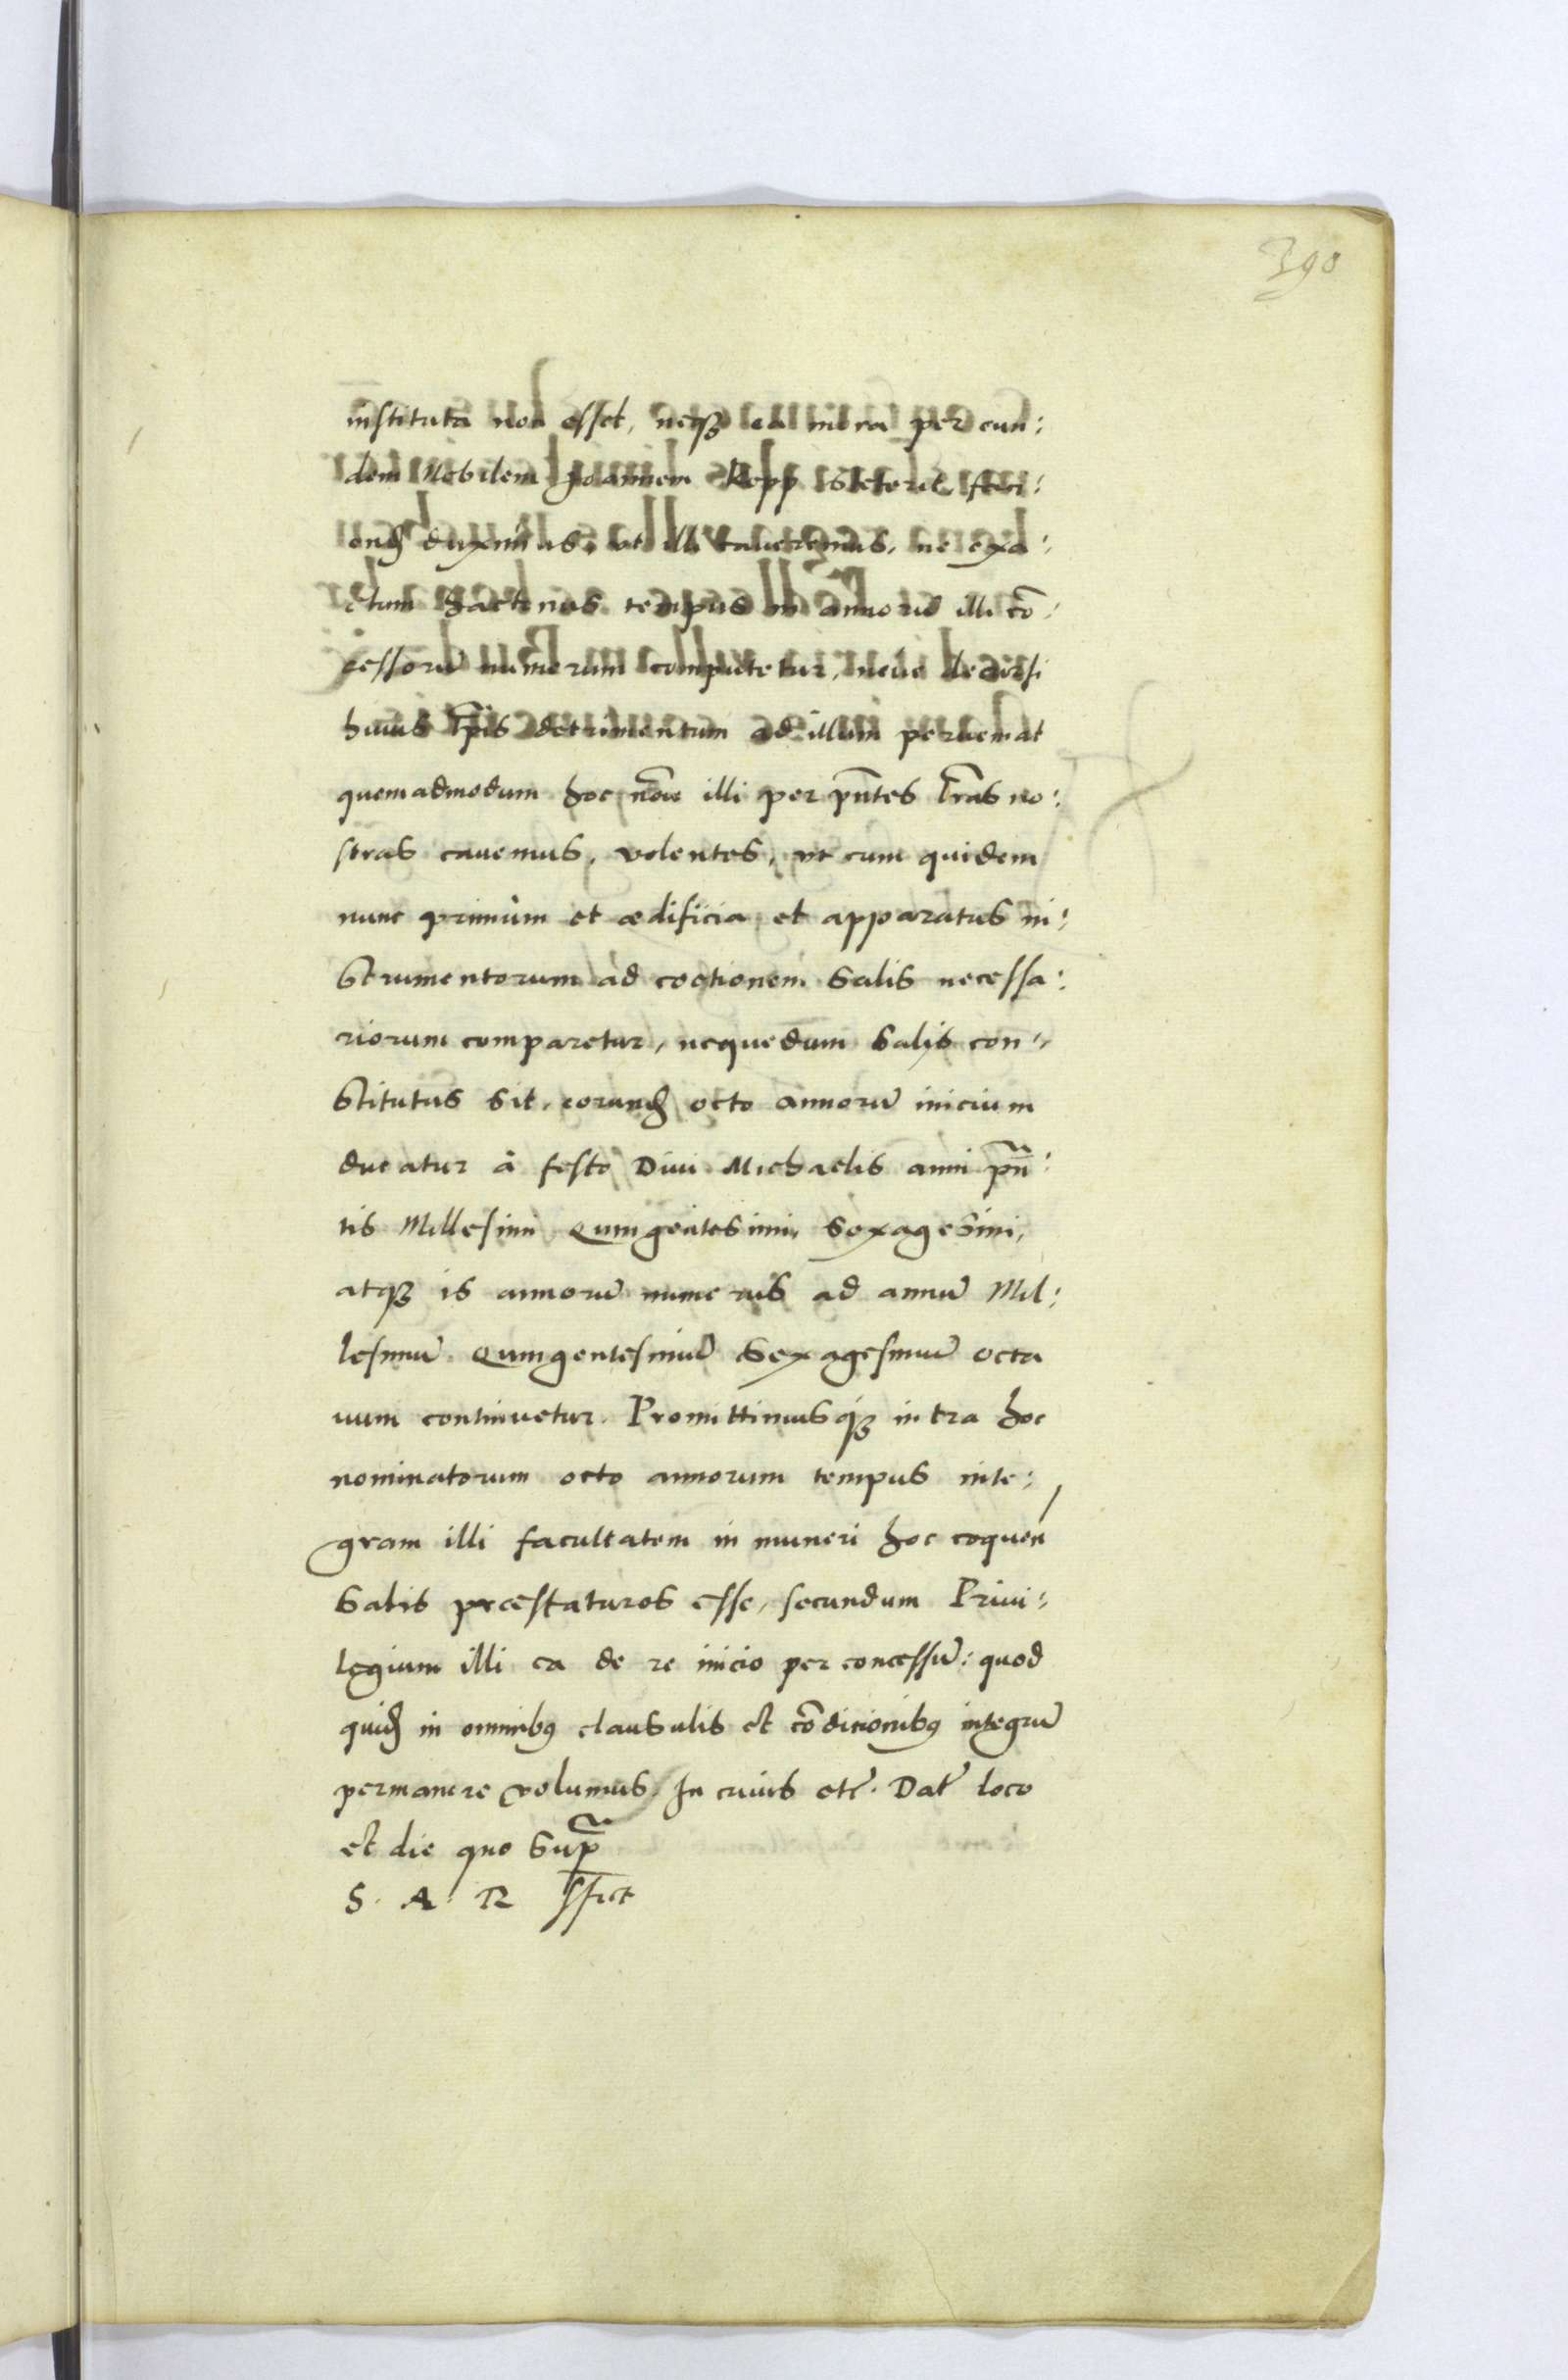 390
instituta non esset, neqꝫ ea mora per eun:
dem Nobilem Joannem Kepp steterit, faci:
endꝫ duximus, ut illi caueremus, ne exa:
ctum hactenus tempus in annorū illi cō:
cessorū numerum computetur, neue decursi
huius tp̄is detrimentum ad illum perueniat
quemadmodum hoc noīe illi per pn̄tes lr̄as no:
stras cauemus, volentes, vt cum quidem
nunc primum et ædificia et apparatus in:
strumentorum ad coctionem salis necessa:
riorum comparetur, nequedum salis con:
stitutus sit, eorundꝫ octo annorū inicium
ducatur à festo Diui Michaelis anni pn̄:
tis Millesimi Quingentesimi, Sexagesimi,
atqꝫ is annorū numerus ad annū Mil:
lesimū Quingentesimū Sexagesimū octa
uum continuetur. Promittimusqꝫ intra hoc
nominatorum octo annorum tempus inte:
gram illi facultatem in muneri hoc coquen̄
Salis præstaturos esse, secundum Priui:
legium illi ea de re inicio per concessū: quod
quidꝫ in omnibꝰ clausulis et cōdicionibꝰ integrū
permanere volumus. In cuius etc̄. Dat̄ loco
et die quo supr̄a
S. A. R